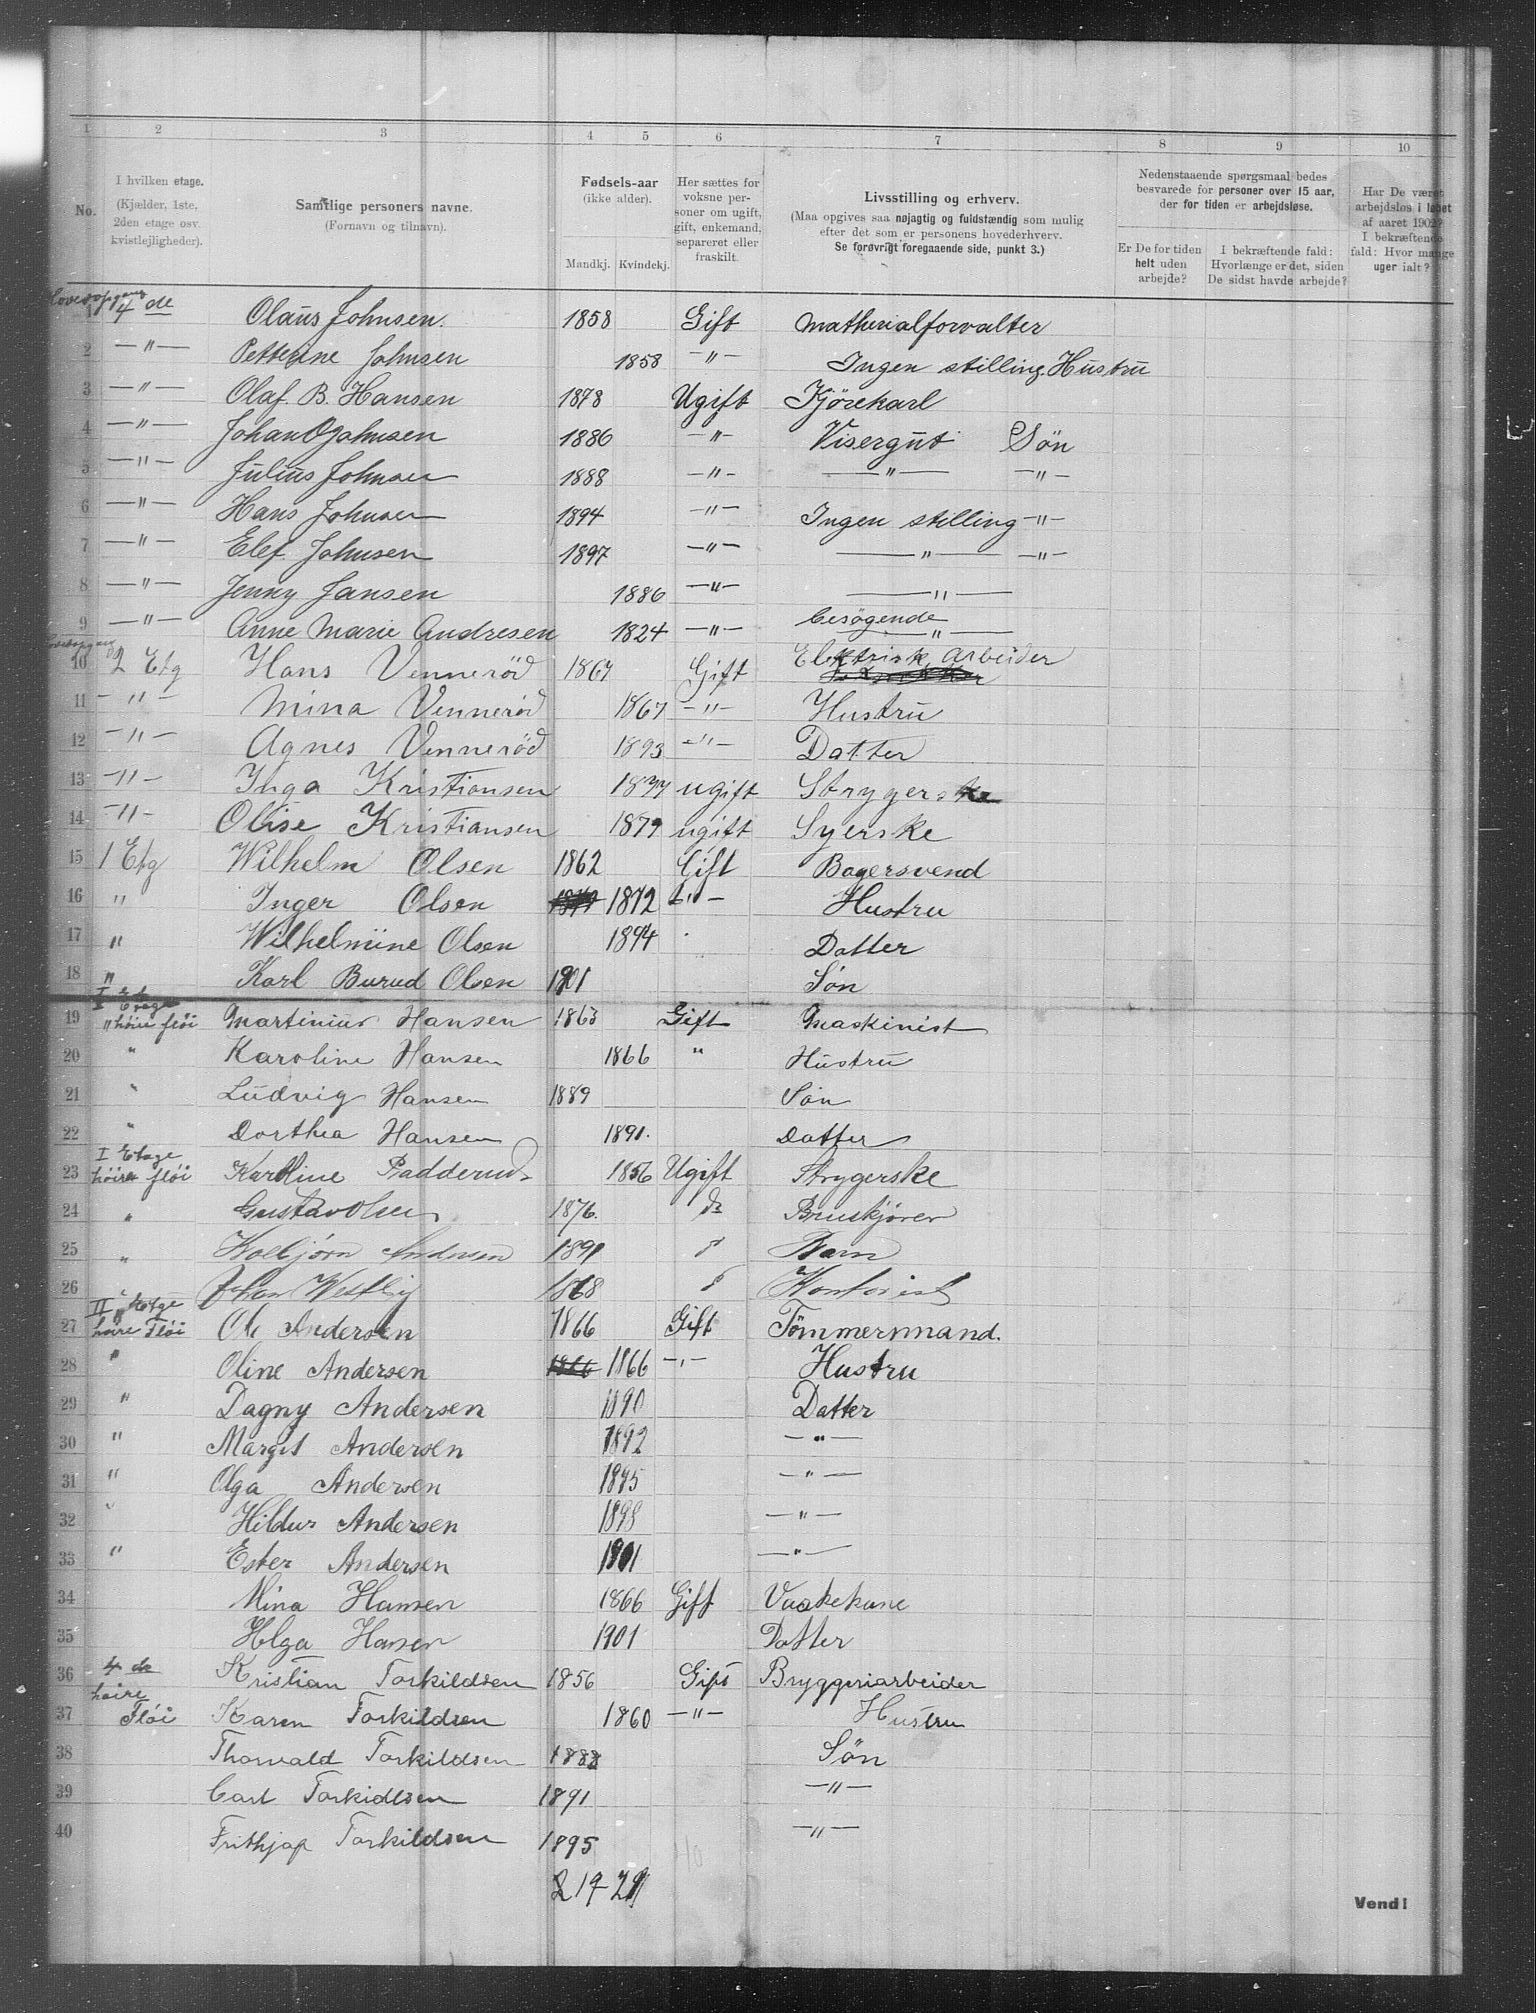 1 2 3 4 5 6 7 8 9 10
No.
I hvilken etage.
(Kjælder, 1ste,
2den etage osv.
kvistlejligheder).
Samtlige personers navne.
(Fornavn og tilnavn).
Fødsels-aar
(ikke alder).
Mandkj. Kvindekj.
Her sættes for
voksne per-
soner om ugift,
gift, enkemand,
separeret eller
fraskilt.
Livsstilling og erhverv.
(Maa opgives saa nøjagtig og fuldstændig som mulig
efter det som er personens hovederhverv.
Se forøvrigt foregaaende side, punkt 3.)
Nedenstaaende spørgsmaal bedes
besvarede for personer over 15 aar,
der for tiden er arbejdsløse.
Er De for tiden
helt uden
arbejde?
I bekræftende fald:
Hvorlænge er det, siden
De sidst havde arbejde?
Har De været
arbejdsløs i løbet
af aaret 1902?
I bekræftende
fald: Hvor mange
uger ialt?
1 4 de Olaus Johnsen. 1858 Gift matherialforvalter
2 —"— Petterine Johnsen 1858 —"— Ingen stilling Hustru
3 —"— Olaf B. Hansen 1878 Ugift Kjörekarl
4 —"— Johan O Johnsen 1886 —"— Visergut Sön
5 —"— Julius Johnsen 1888 —"— —"— —"—
6 —"— Hans Johnsen 1894 —"— Ingen stilling —"—
7 —"— Elef Johnsen 1897 —"— —"— —"—
8 —"— Jenny Jansen 1886 —"— —"—
9 —"— Anne Marie Andresen 1824 —"— besögende —"—
10 2 Etg Hans Venneröd 1867 Gift Elektrisk Arbeider
11 —"— Mina Venneröd 1867 —"— Hustru
12 —"— Agnes Venneröd 1893 —"— Datter
13 —"— Inga Kristiansen 1877 ugift Strygerske
14 —"— Olise Kristiansen 1879 ugift Syerske
15 1 Etg Wilhelm Olsen 1862 Gift Bagersvend
16 " Inger Olsen 1872 —"— Hustru
17 " Wilhelmine Olsen 1894 Datter
18 " Karl Burud Olsen 1901 Sön
I Etage
19 " höire flöi Martinius Hansen 1863 Gift Maskinist
20 " Karoline Hansen 1866 " Hustru
21 " Ludvig Hansen 1889 Sön
22 " Dorthea Hansen 1891. Datter
I Etage
23 höire flöi Karoline Radderud 1856 Ugift Strygerske
24 " Gustav Olsen 1876. do Bruskjörer
25 " Kolbjörn Andersen 1891 d Barn
26 " Johan Westby 1868 d Kontorist
II Etge
27 höire Flöi Ole Andersen 1866 Gift Tömmermand.
28 " Oline Andersen 1866 1866 —"— Hustru
29 " Dagny Andersen 1890 Datter
30 " Margit Andersen 1892 —"—
31 " Olga Andersen 1895 —"—
32 " Hildur Andersen 1898 —"—
33 " Ester Andersen 1901 —"—
34 Mina Hansen 1866 Gift Vaskekone
35 Helga Hansen 1901 Datter
36 4 de Kristian Torkildsen 1856 Gift Bryggeriarbeider
höire
37 Flöi Karen Torkildsen 1860 —"— Hustru
38 Thorvald Torkildsen 1888 Sön
39 Carl Torkidlsen 1891 —"—
40 Frithjof Torkildsen 1895 —"—
Vend!